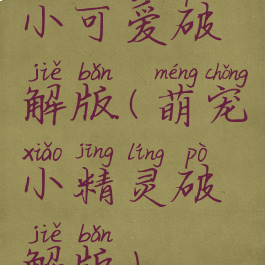 小可爱破
jiě bǎn méng chǒng
解版(萌宠
xiǎo jīng líng pò
小精灵破
jiě bǎn
解版)